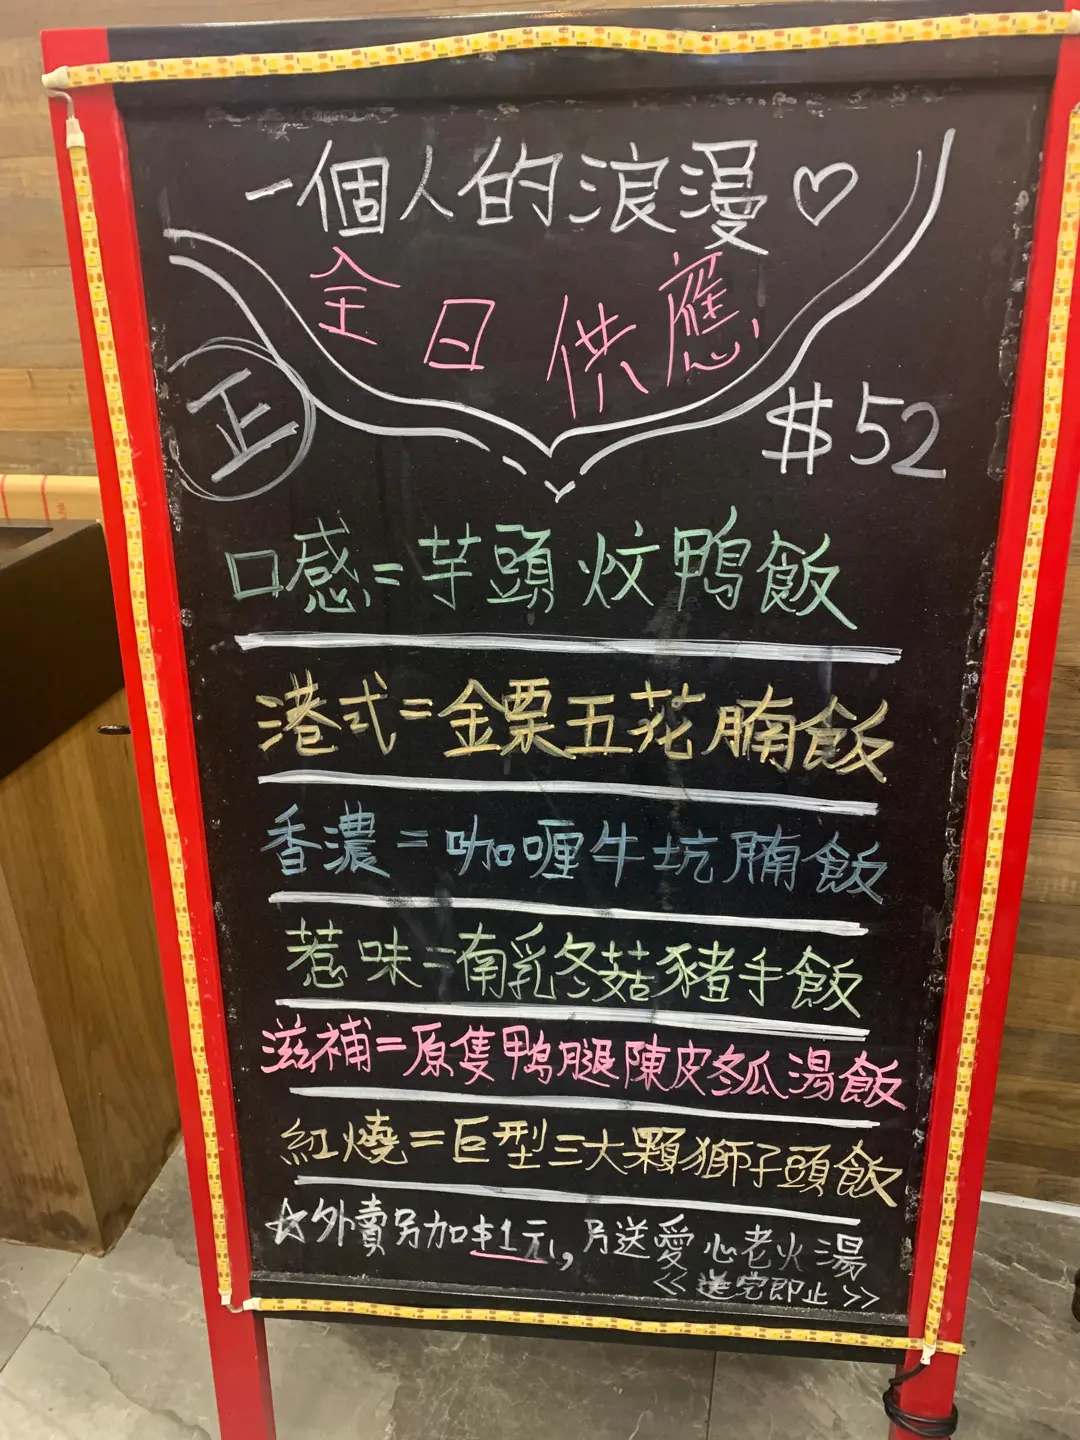 一個人的浪漫♡
全日供應
正
$52
口感=芋頭炆鴨飯
港式=金栗五花腩飯
香濃=咖喱牛坑腩飯
惹味=南乳冬菇豬手飯
滋補=原隻鴨腿陳皮冬瓜湯飯
紅燒=巨型三大顆獅子頭飯
☆外賣另加$1元,另送愛心老火湯
<<送完即止>>